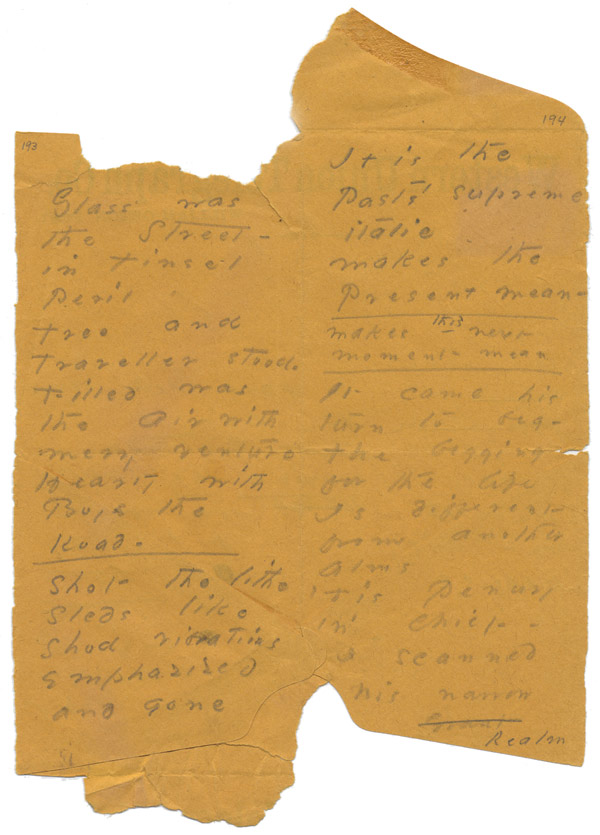 193
Glass was
the Street -
in tinsel
Peril
tree and
Traveller stood.
Filled was
the Air with
merry venture
Hearty with
Boys the
Road -
Shot the lithe
Sleds like
Shod vibrations
Emphasized
and gone
194
It is the
Past's supreme
italic
makes the
Present mean -
makes this new
moment mean
It came his
turn to beg -
The begging
for the life
Is different
from another
Alms
'tis Penury
in Chief -
I scanned
his narrow
Realm